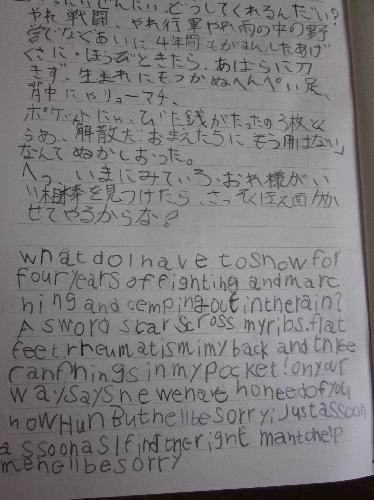 いったいぜんたい、どうしてくれるんだい?
やれ戦闘、やれ行軍やれ雨の中の野
営でなぐあいに4年間もがまんしたあげ
くさに・ほうびときたら、あばらに刀
きず、生まれにもつかぬへんぺい足、
背中にゃリューマチ、
ポケットにゃ、びた銭がたったの3枚とく
らぁ、解散だ、おまえたちにもう用はない」
なんてぬかしおった。
へっ、いまにみていろ、おれ様がい
い相棒を見つけたら、さっそくほえ面かか
せてやるからな!
what do I have to show for
four years of fighting and marc
hing and cemping out in the rain?
A sword scar scross my ribs. flat
feet. rheumatism i my back and three
ranthings in my pocket! on your
way says he we have no need of you
now HuH But he ll be sorry; Just as soon
a s soon as I find the right man to help
me he ll be sorry